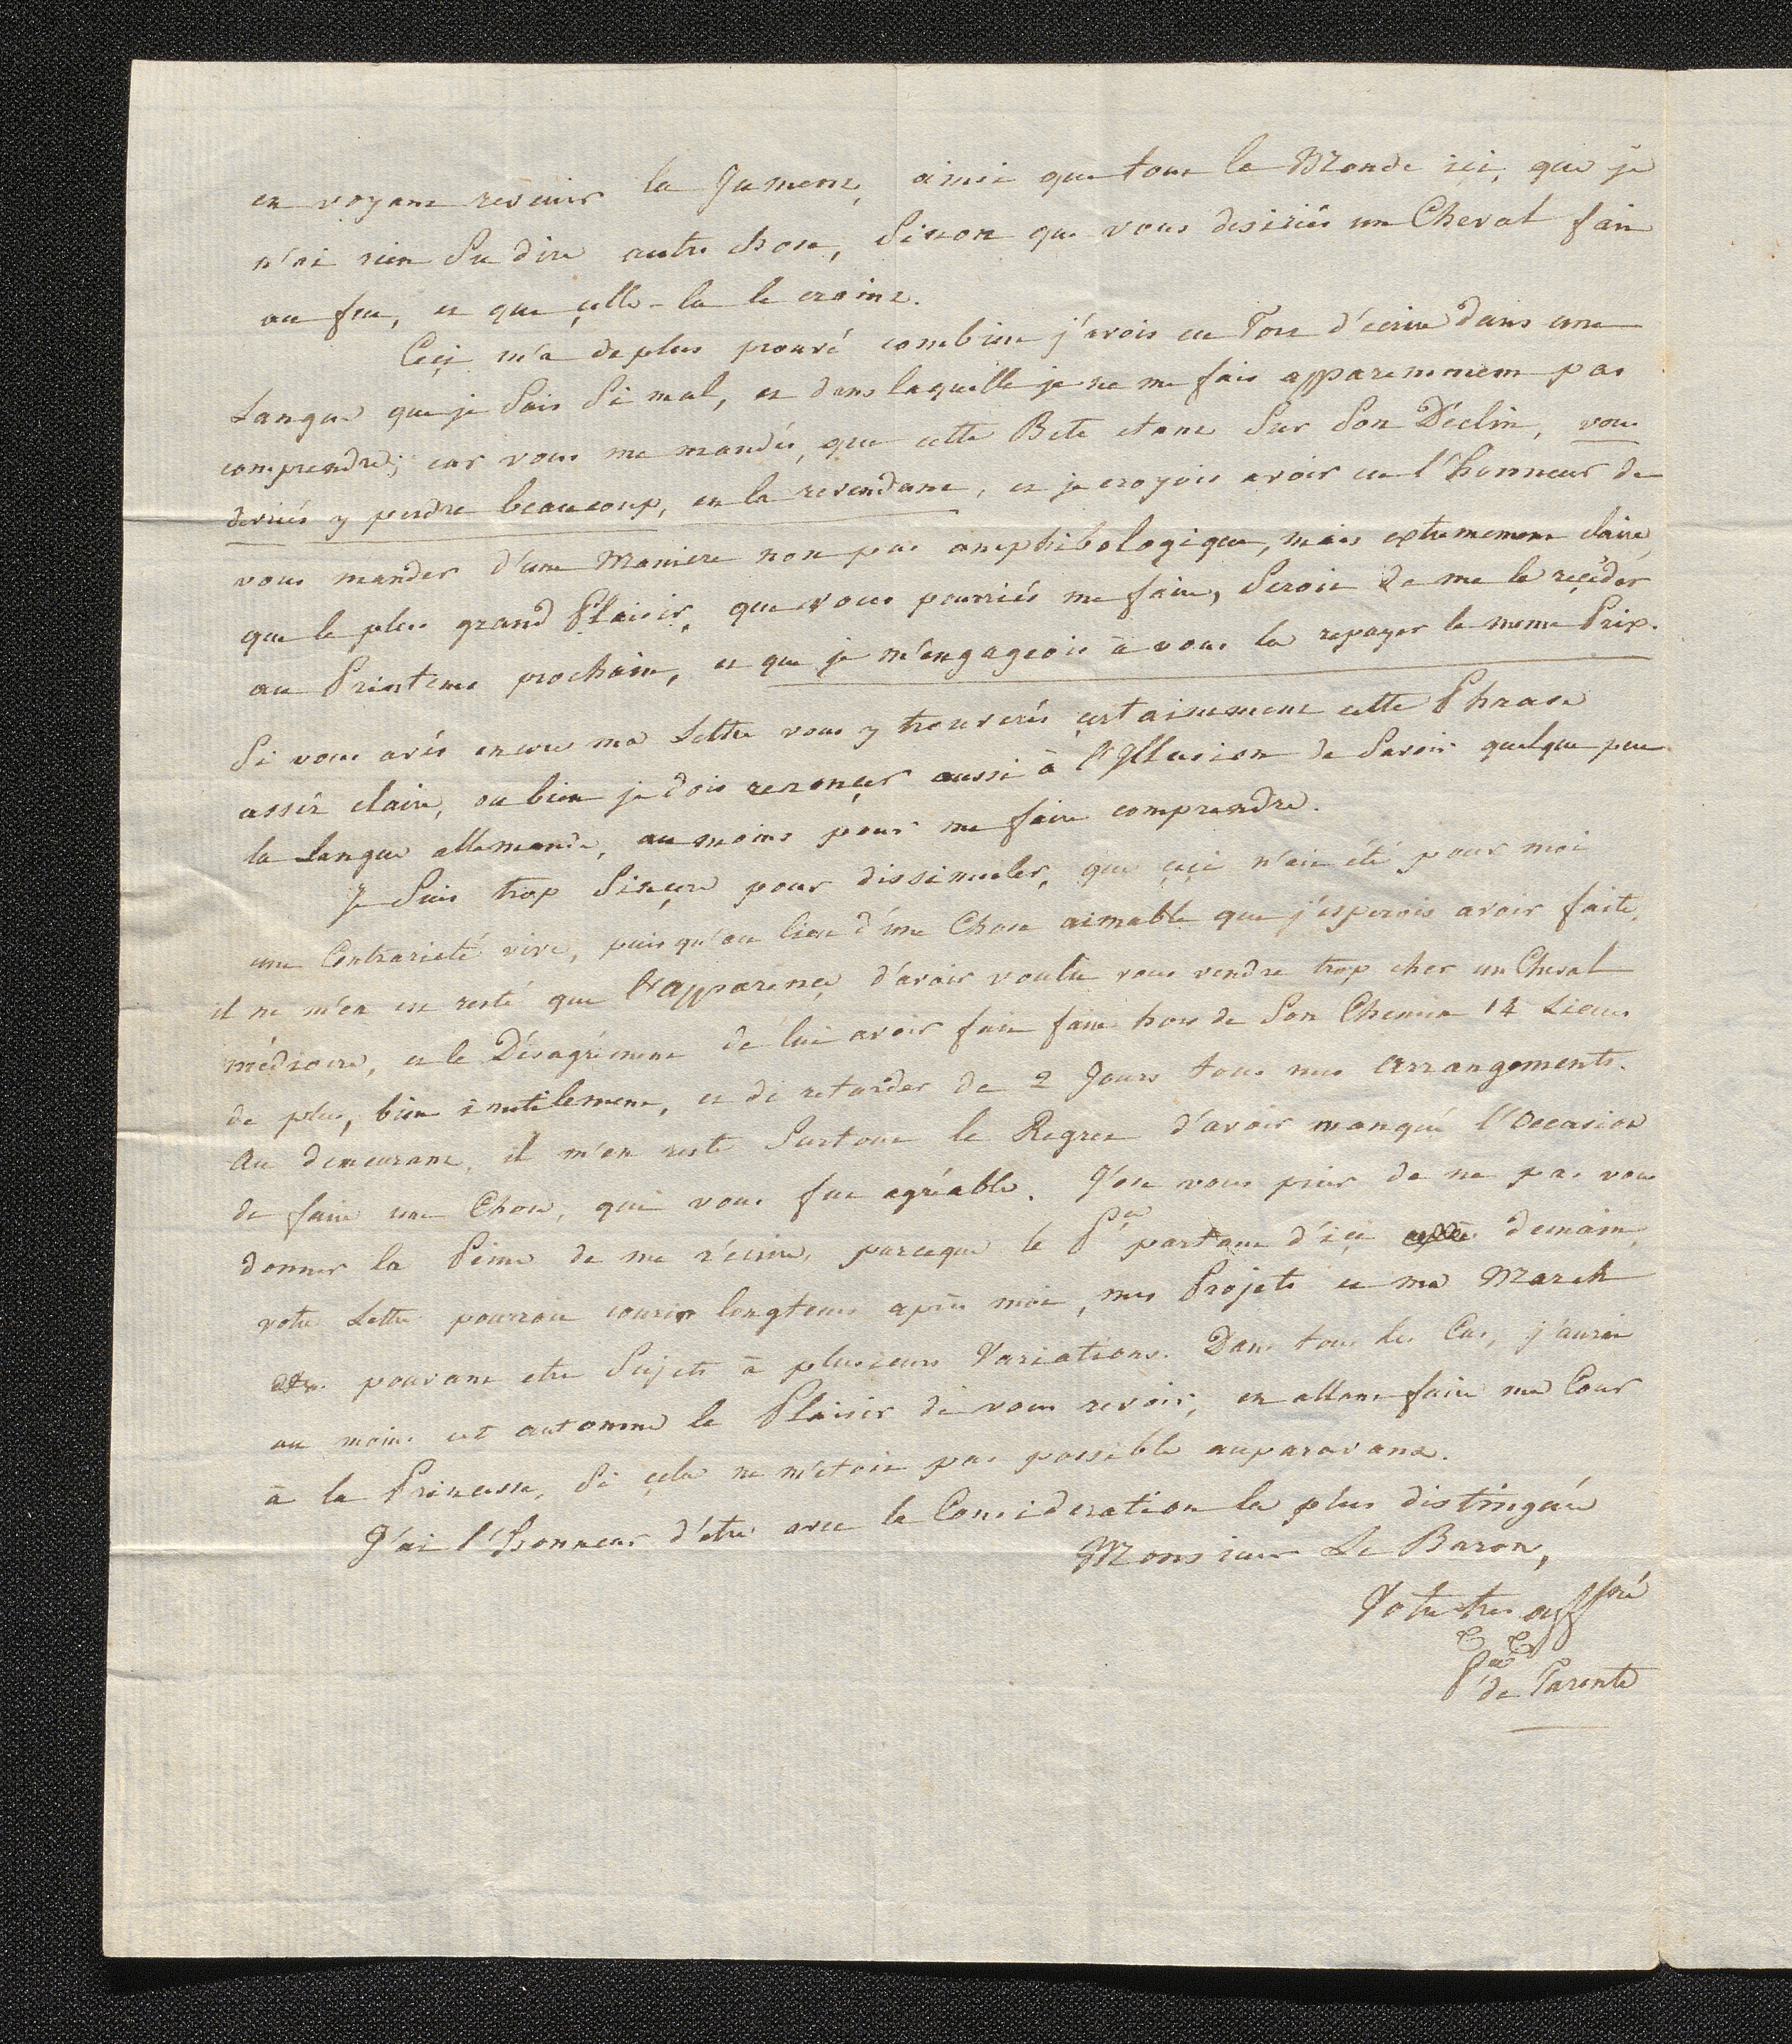 en voyant revenir la Jument, ainsi que tout le Monde içi, que je
n'ai rien Su dire autre chose, Sinon que vous desiriés un Cheval fait
au feu, et que çelle-la le craint.
Ceçi m'a de plus prouvé combien j'avois eu Tort d'écrire dans une
Langue que je Sais Si mal, et dans laquelle je ne me fais apparemment pas
comprendre; car vous me mandés, que cette Bete etant Sur Son Déclin, vous
devriés y perdre beaucoup, en la revendant, et je croyois avoir eu l'honneur de
vous mander d'une Maniere non pas amphibologique, mais extremement claire,
que le plus grand Plaisir, que vous pourriés me faire, Seroit de me la reçéder
au Printems prochain, et que je m'engageois à vous la repayer le meme Prix.
Si vous avés encore ma Lettre vous y trouverés çertainement cette Phrase
assés claire, ou bien je dois renonçer aussi à l'Illusion de Savoir quelque peu
la Langue allemande, au moins pour me faire comprendre.
Je Suis trop Sinçere pour dissimuler, que çeçi n'ait été pour moi
une Contrarieté vive, puisqu'au lieu d'une Chose aimable que j'esperois avoir faite,
il ne m'en est resté que l'Apparençe d'avoir voulu vous vendre trop cher un Cheval
médiocre, et le Désagrément de lui avoir fait faire hors de Son Chemin 14 Lieues
de plus, bien inutilement, et de retarder de 2 Jours tous mes Arrangements.
Au demeurant, il m'en reste Surtout le Regret d'avoir manqué l'Occasion
de faire une Chose, qui vous fut agréable. J'ose vous prier de ne pas vous
donner la Peine de me récrire, parceque le Pce partant d'içi demain,
votre Lettre pourroit courir longtems après moi, mes Projets et ma March
pouvant etre Sujets à plusieurs Variations. Dans tous les Cas, j'aurai
au moins cet automne le Plaisir de vous revoir, en allant faire ma Cour
à la Princesse, Si çela ne m'etoit pas possible auparavant.
J'ai l'honneur d'etre avec la Consideration la plus distinguée
Monsieur Le Baron,
Votre tres affné
Pce de Tarente